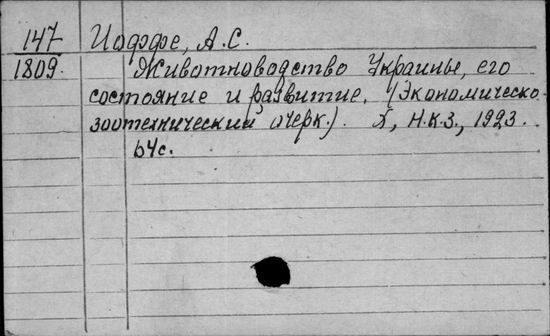 147 Иоффе, А.С.
1809. Животноводство Украины, его
состояние и развитие. (Экономическо-
зоотехнический очерк.). Х, Н.К.З., 1923.
64с.